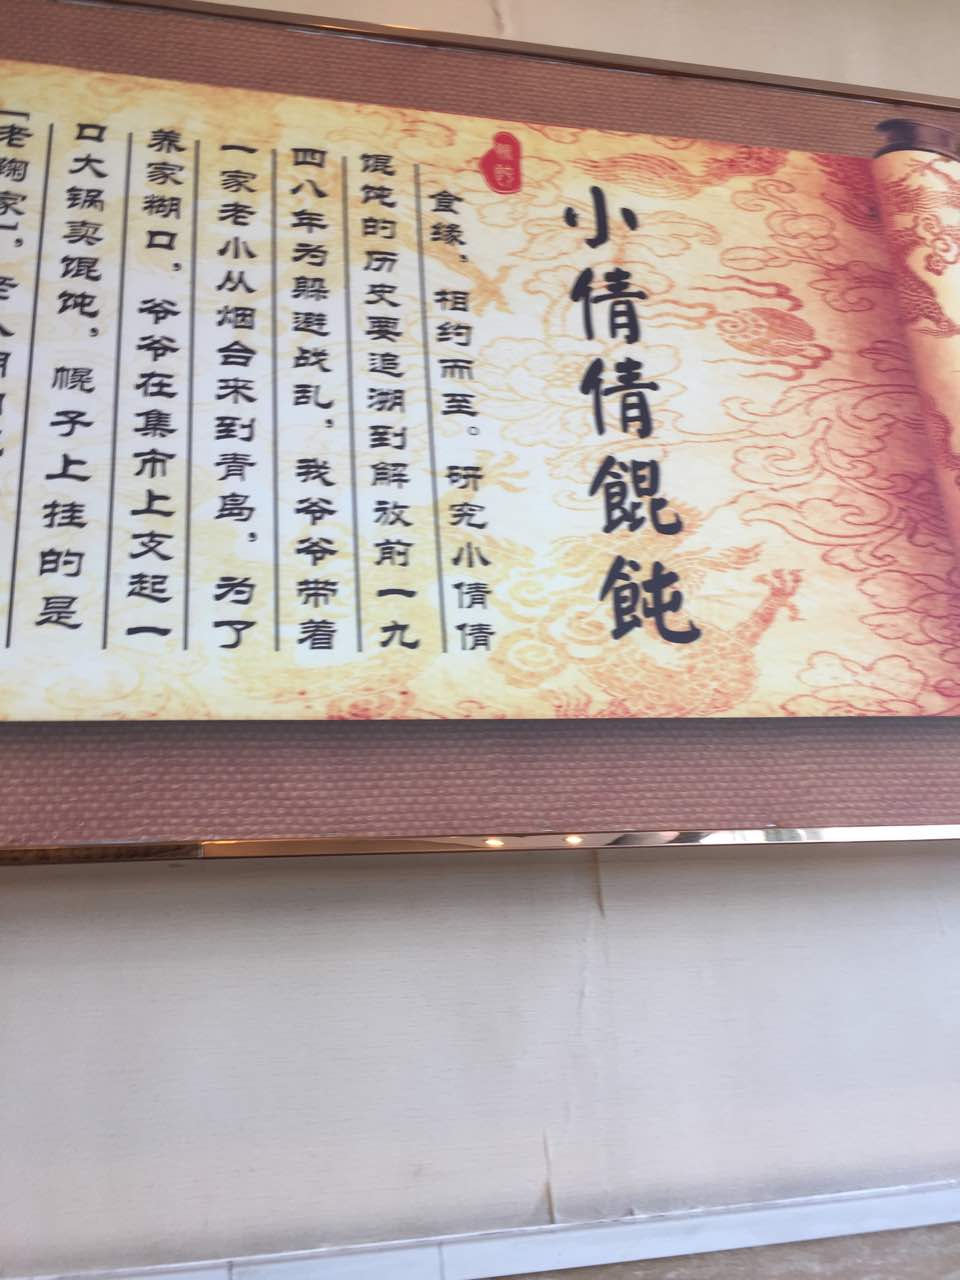 小倩倩餛飩
食缘，相约而至。研究小倩倩
馄饨的历史要追溯到解放前一九
四八年为躲避战乱，我爷爷带着
一家老小从烟台来到青岛，为了
养家糊口，爷爷在集市上支起一
口大锅卖馄饨，幌子上挂的是
「老鞠家」，老